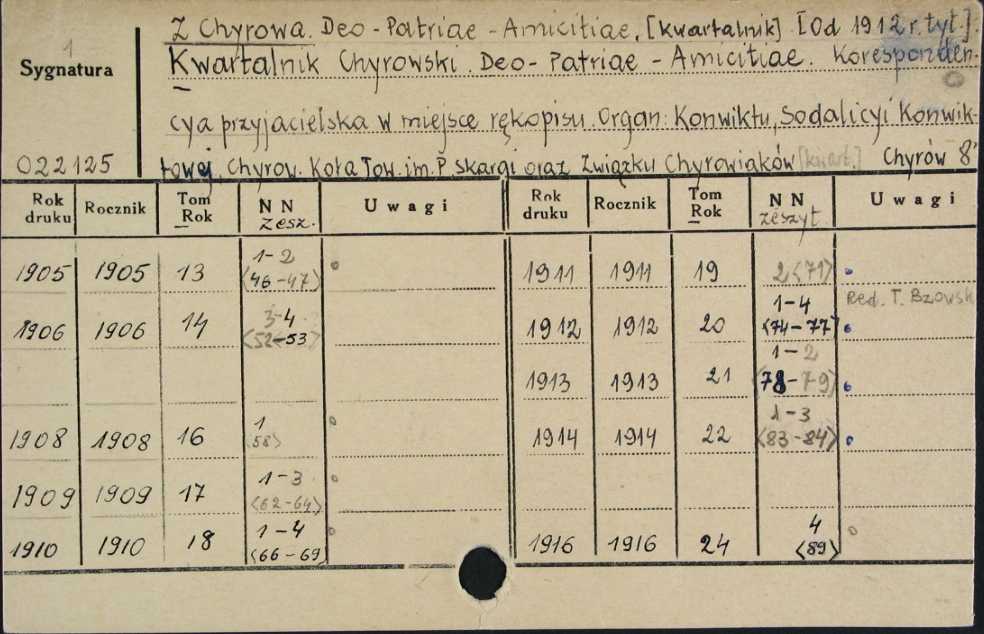 Z Chyrowa. Deo - Patriae - Amicitiae, [kwartalnik] [Od 1912 r. tyt.].
1
Sygnatura
Kwartalnik Chyrowski. Deo - Patriae - Amicitiae. Koresponden-
cya przyjacielska w miejsce rękopisu. Organ: Konwiktu, Sodalicyi Konwik-
022125
towej, Chyrow. Koła Tow. im. P. Skargi oraz Związku Chyrowiaków [kwart.] Chyrów 8°
Rok druku Rocznik Tom Rok NN zesz. Uwagi Rok druku Rocznik Tom Rok NN zeszyt. Uwagi
1905 1905 13 1-2 <46-47> 1911 1911 19 2 <71>
Red. T. Bzowsk
1906 1906 14 3-4 <52-53> 1912 1912 20 1-4 <74-77>
1913 1913 21 1-2 <78-79>
1908 1908 16 1 <58> 1914 1914 22 1-3 <83-84>
1909 1909 17 1-3 <62-64>
1910 1910 18 1-4 <66-69> 1916 1916 24 4 <89>